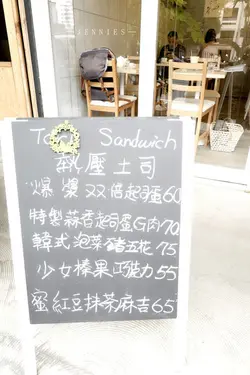 JINNIES
Sandwich
熱壓土司
爆漿双倍起司蛋60
特製蒜香起司蛋G肉70
韓式泡菜豬五花75
少女榛果巧力55
蜜紅豆抹茶麻吉65